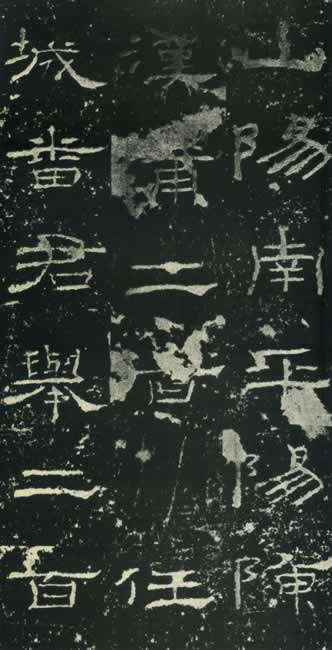 山陽南平陽陳
漢甫二百 任
城番君舉二百